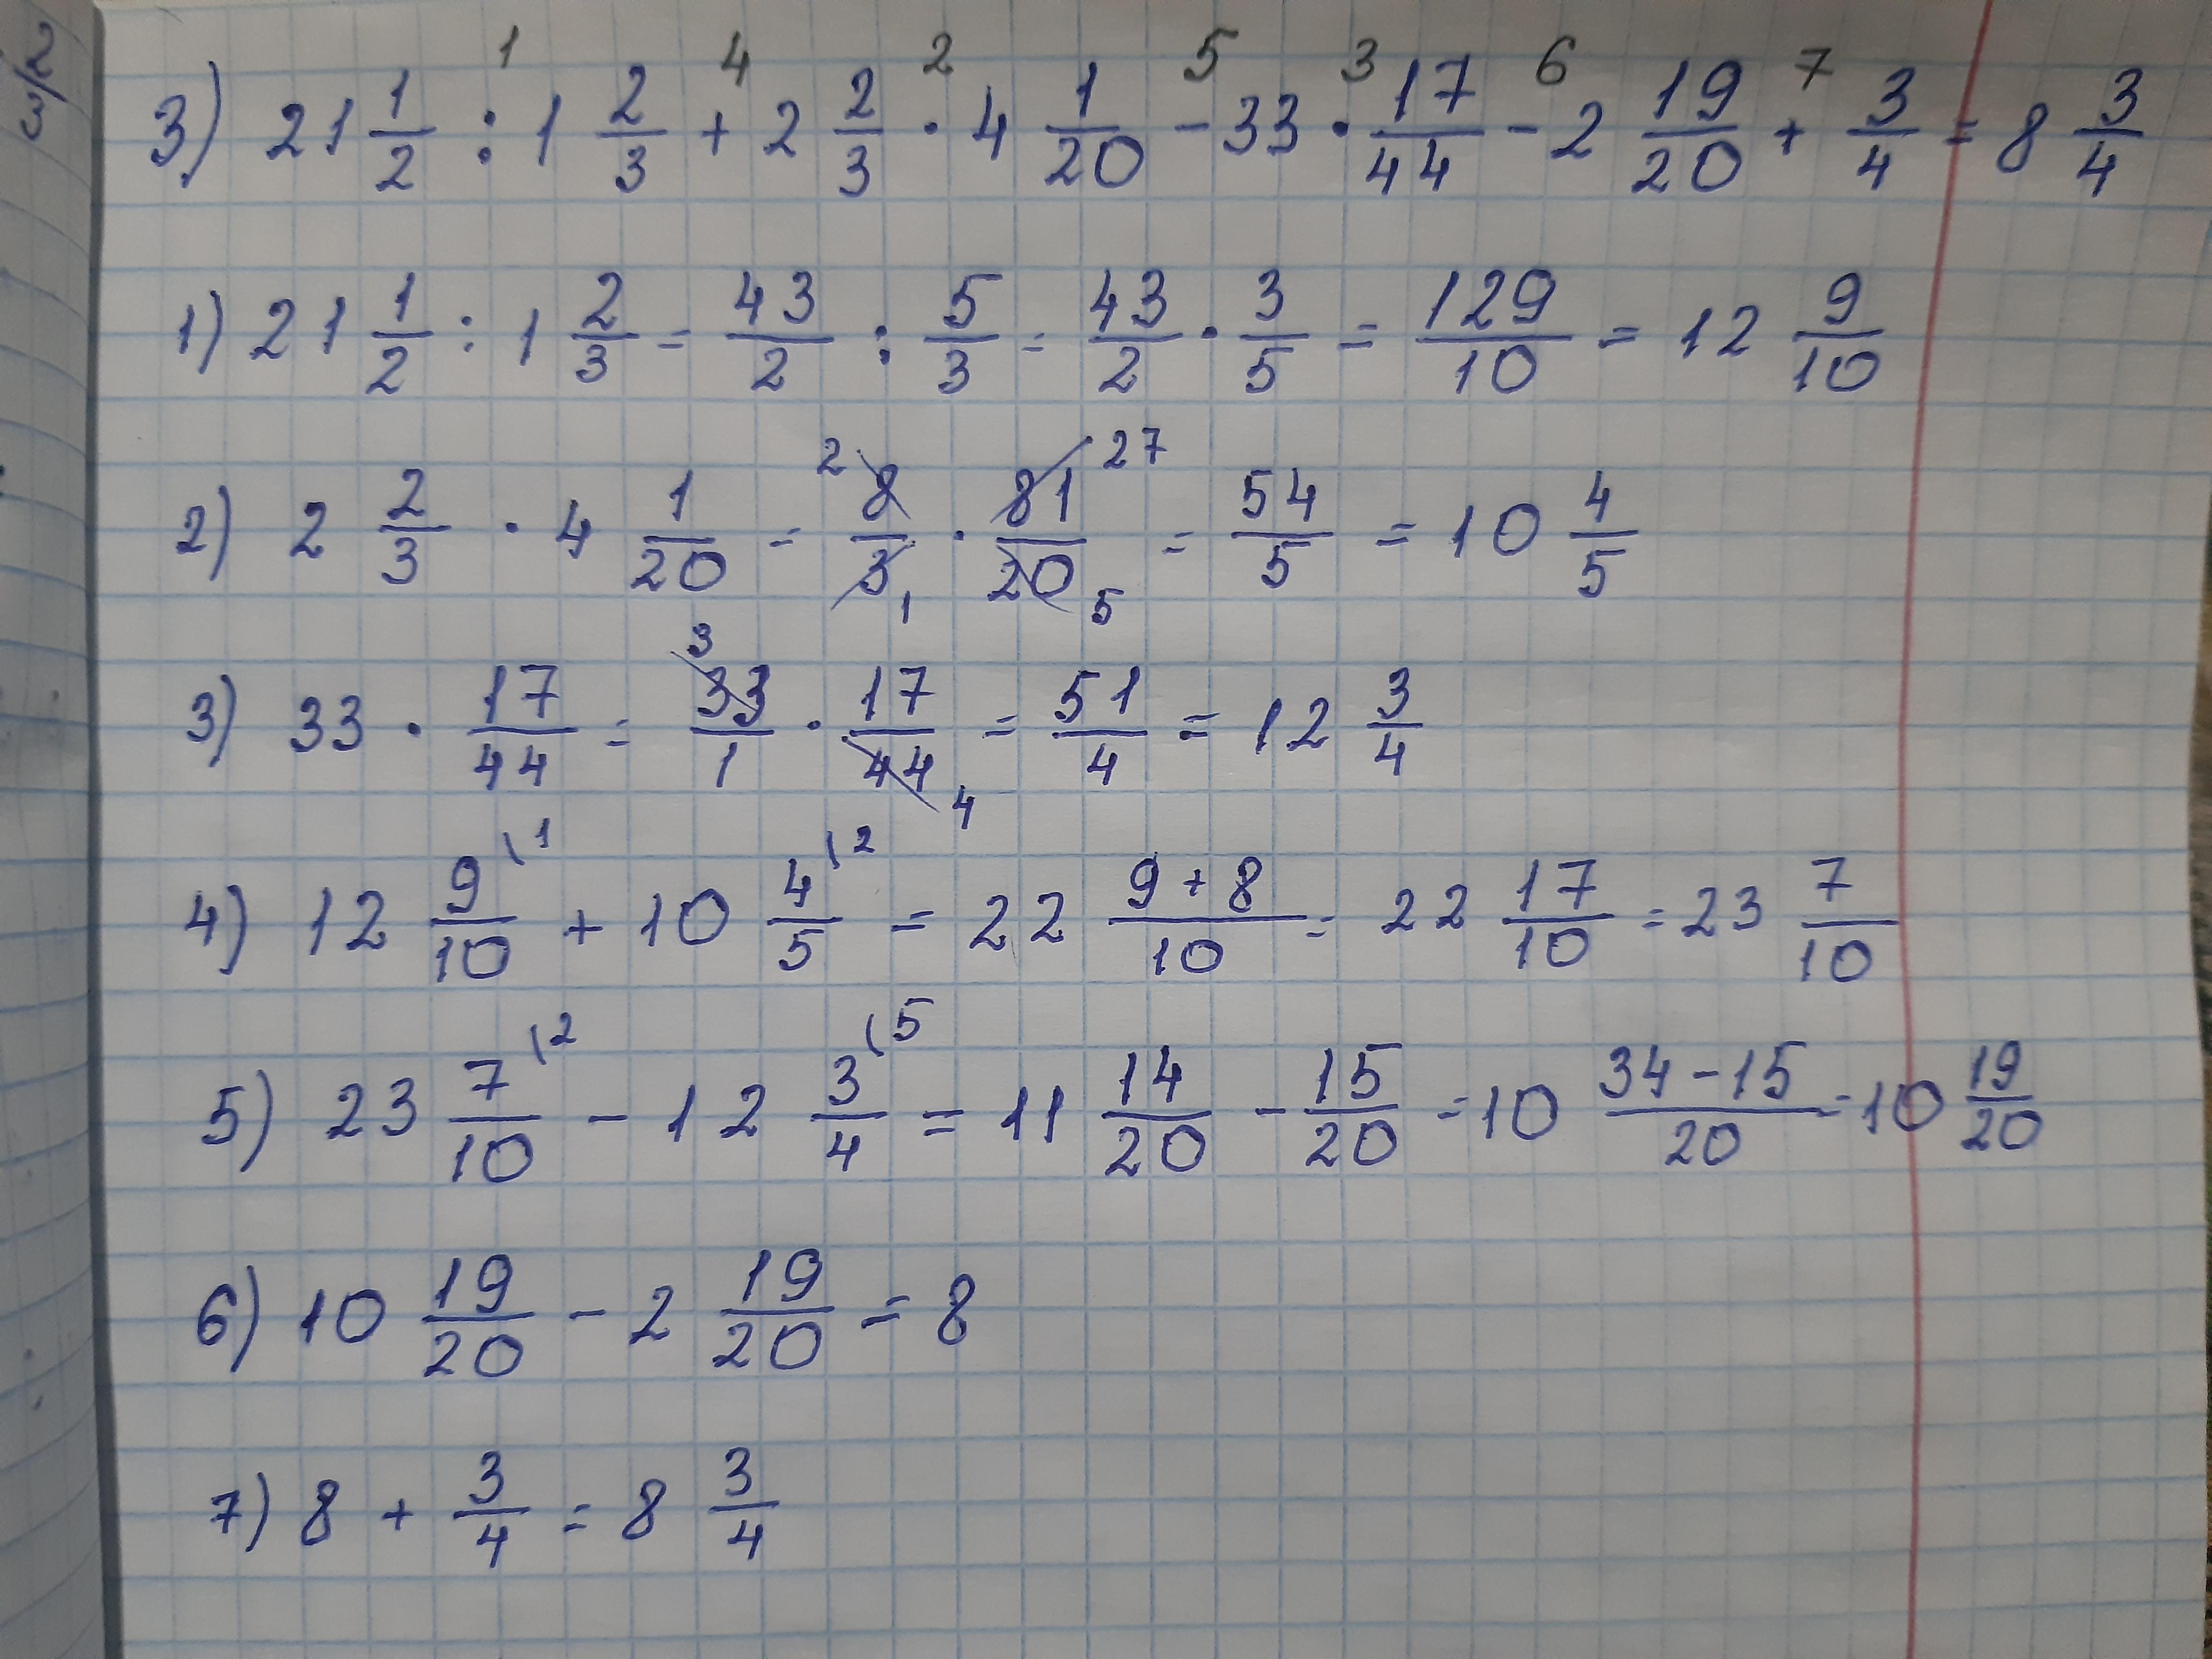 1 4 2 5 3 6 7
3) 21 1/2 : 1 2/3 + 2 2/3 · 4 1/20 - 33 · 17/44 - 2 19/20 + 3/4 = 8 3/4
1) 21 1/2 : 1 2/3 = 43/2 : 5/3 = 43/2 · 3/5 = 129/10 = 12 9/10
2) 2 2/3 · 4 1/20 = 2 8/3 1 · 81 27/20 5 = 54/5 = 10 4/5
3) 33 · 17/44 = 3 33/1 · 17/44 4 = 51/4 = 12 3/4
4) 12 9/10 \1 + 10 4/5 \2 = 22 9+8/10 = 22 17/10 = 23 7/10
5) 23 7/10 \2 - 12 3/4 \5 = 11 14/20 - 15/20 = 10 34-15/20 = 10 19/20
6) 10 19/20 - 2 19/20 = 8
7) 8 + 3/4 = 8 3/4